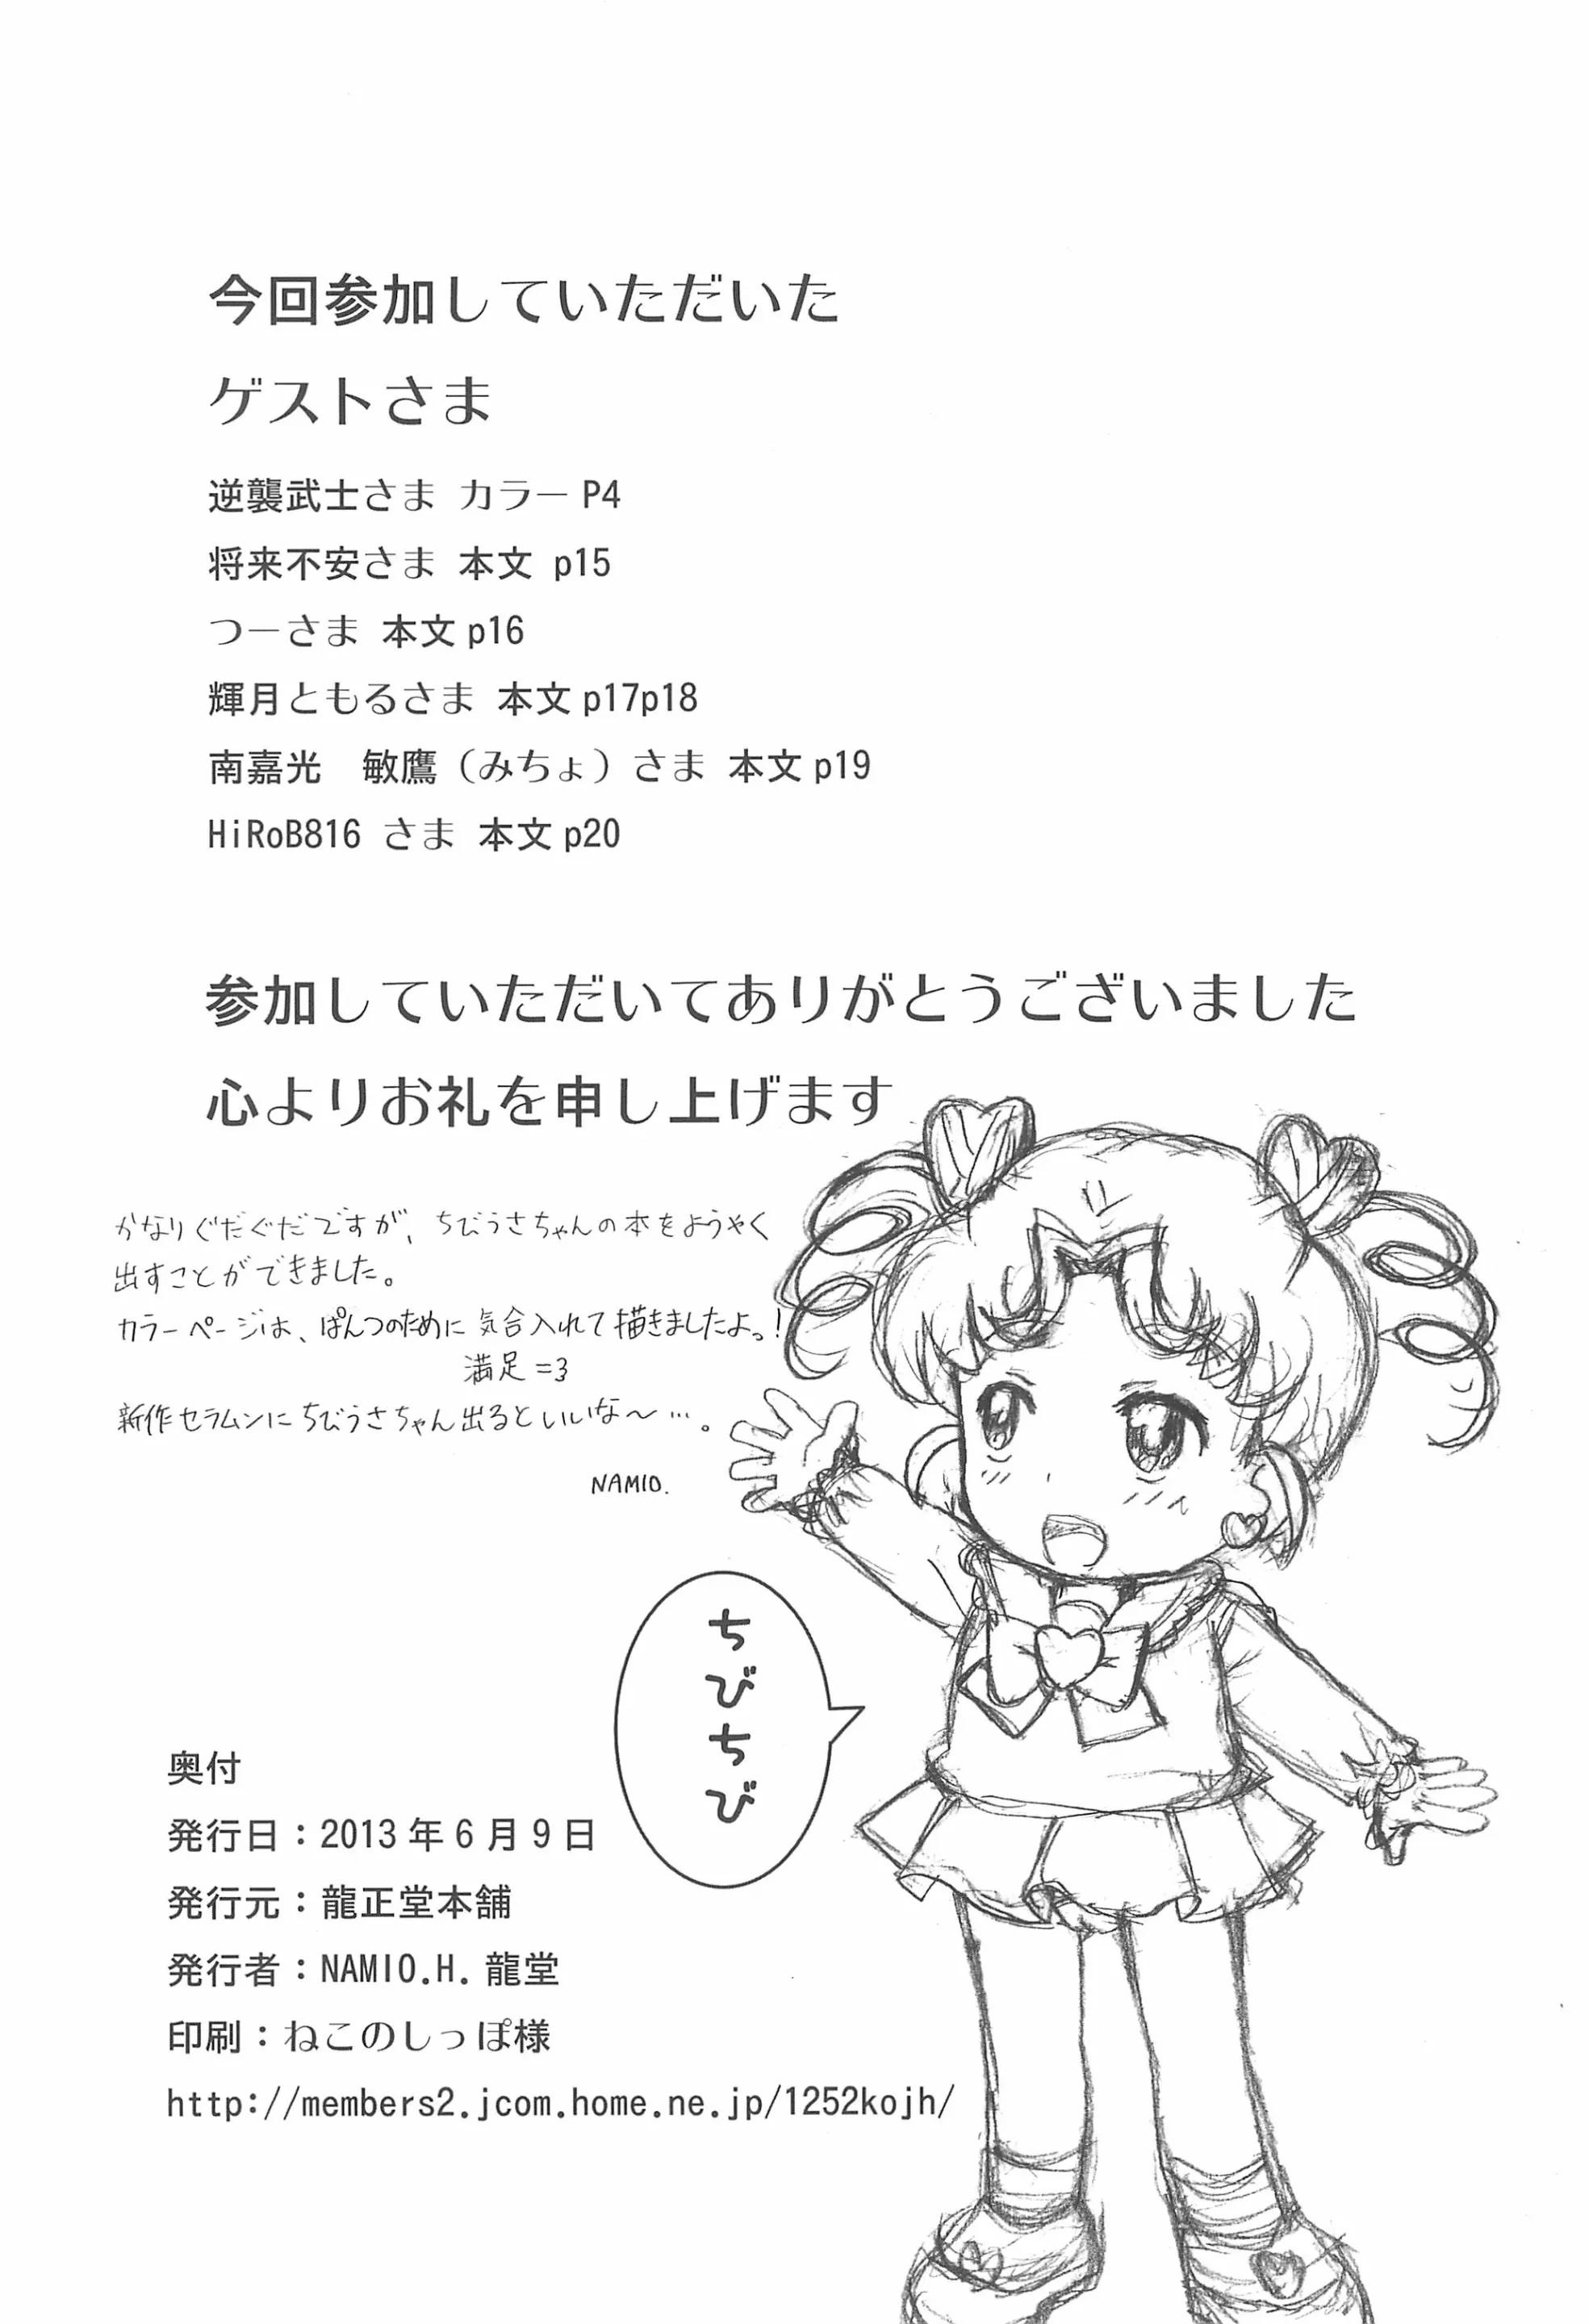 今回参加していただいた
ゲストさま
逆襲武士さま カラー P4
将来不安さま 本文 p15
つーさま 本文 p16
輝月ともるさま 本文 p17p18
南嘉光　敏鷹（みちょ）さま 本文 p19
HiRoB816 さま 本文 p20
参加していただいてありがとうございました
心よりお礼を申し上げます
かなりぐだぐだですが、ちびうさちゃんの本をようやく
出すことができました。
カラーページは、ぱんつのために気合入れて描きましたよっ!
満足=3
新作セラムンにちびうさちゃん出るといいな〜…。
NAMIO.
ちびちび
奥付
発行日：2013 年 6 月 9 日
発行元：龍正堂本舗
発行者：NAMIO.H. 龍堂
印刷：ねこのしっぽ様
http://members2.jcom.home.ne.jp/1252kojh/